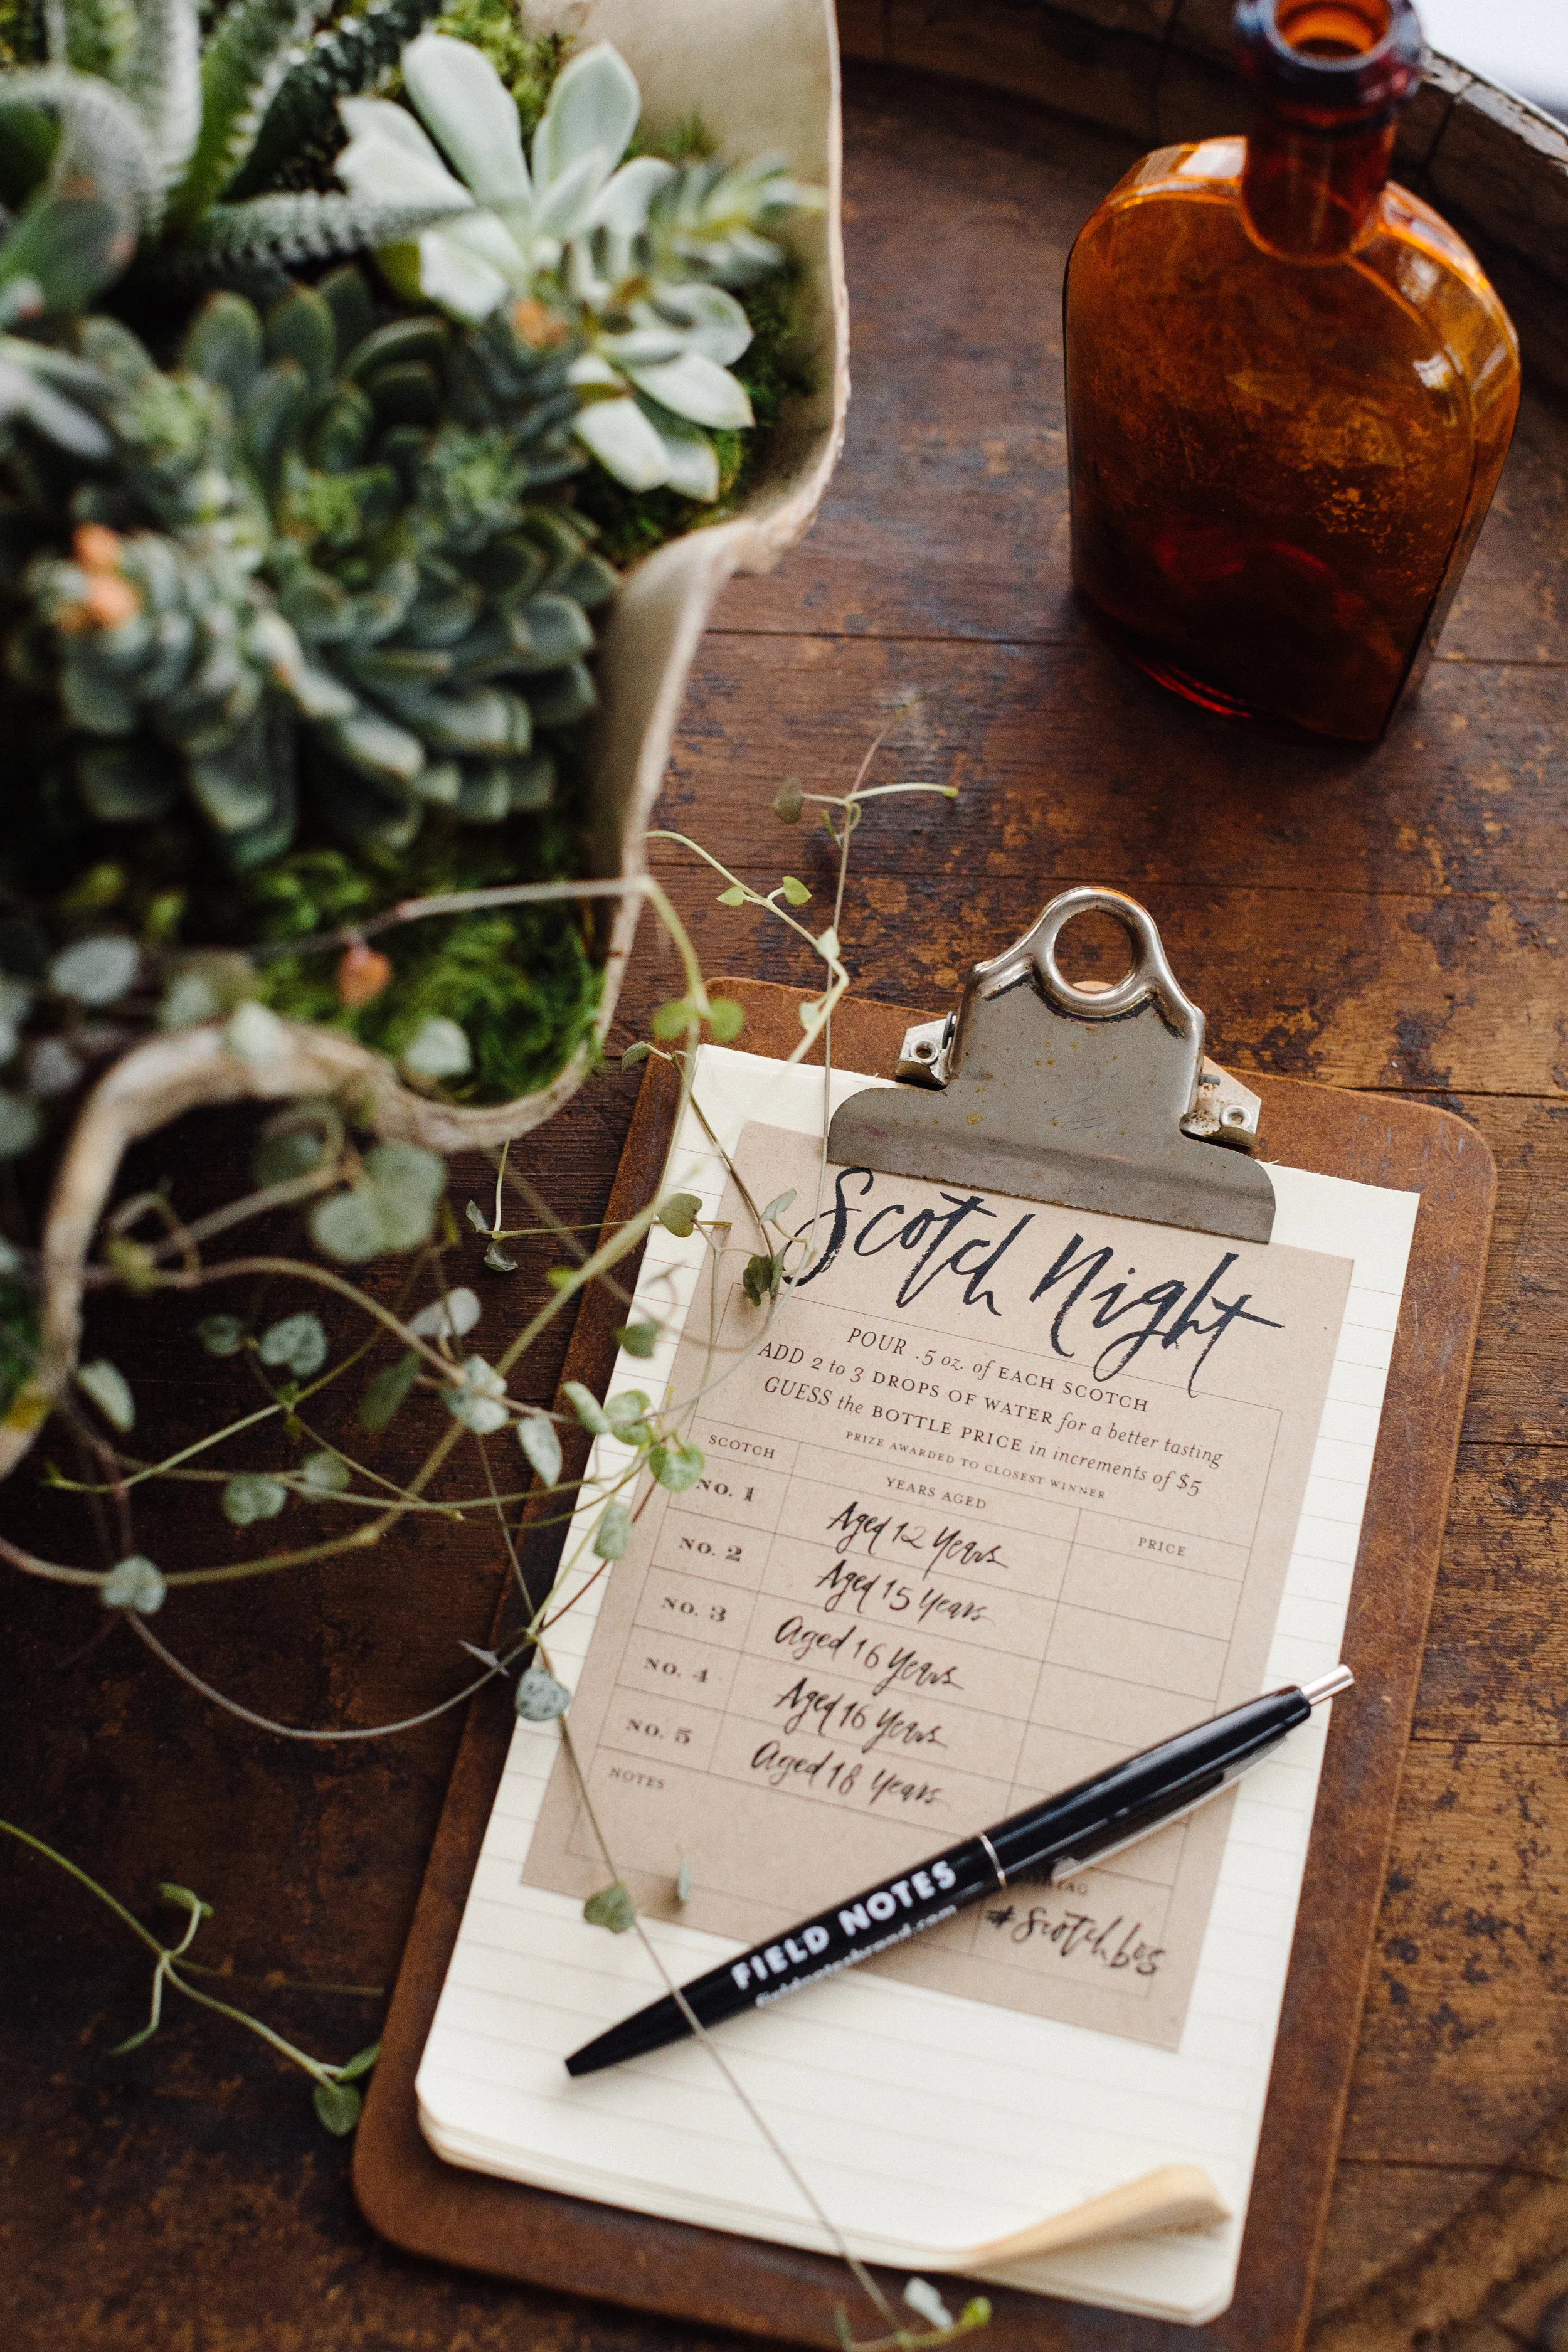 Scotch Night
POUR .5 oz. of EACH SCOTCH
ADD 2 to 3 DROPS OF WATER for a better tasting
GUESS the BOTTLE PRICE in increments of $5
PRIZE AWARDED TO CLOSEST WINNER
SCOTCH YEARS AGED PRICE
NO. 1 Aged 12 Years
NO. 2 Aged 15 Years
NO. 3 Aged 16 Years
NO. 4 Aged 16 Years
NO. 5 Aged 18 Years
NOTES
#Scotchbos
FIELD NOTES
fieldnotesbrand.com